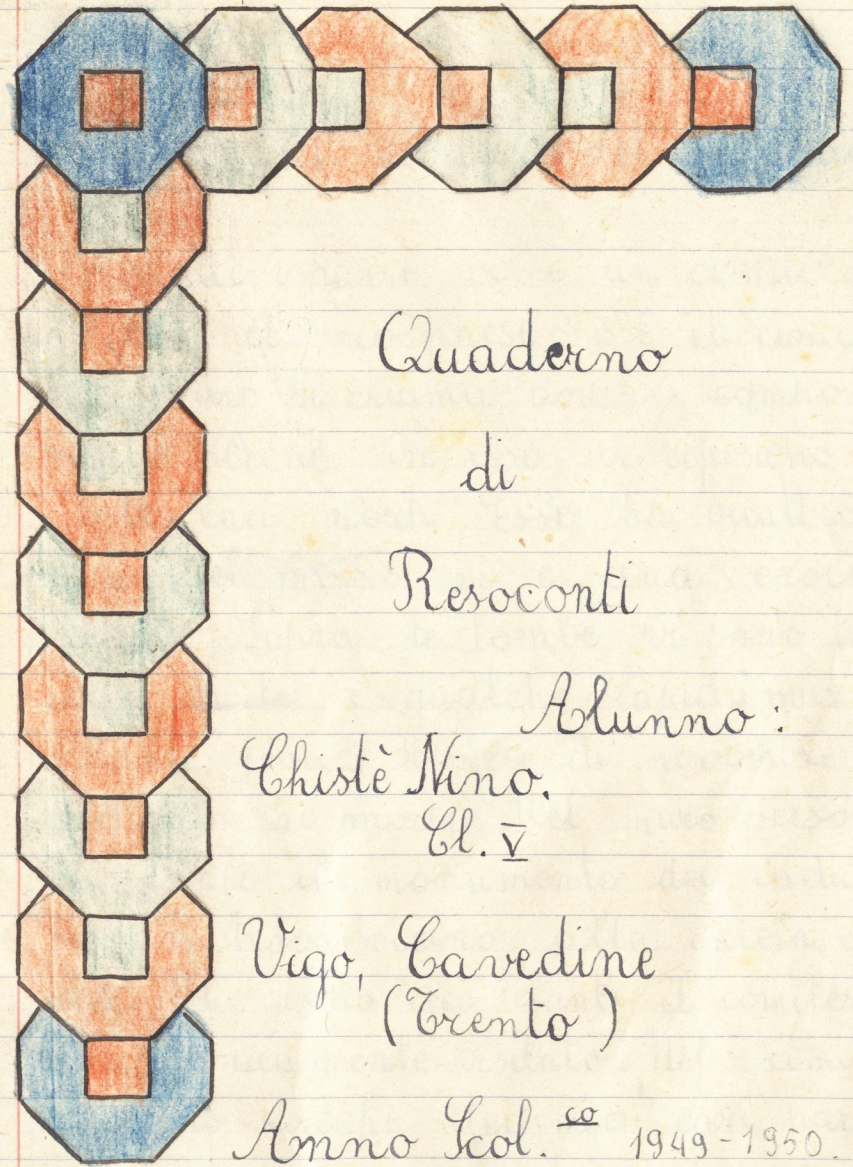 Quaderno
di
Resoconti
Alunno:
Chistè Nino.
Cl. V
Vigo, Cavedine
(Trento)
Anno Scol.co 1949-1950.